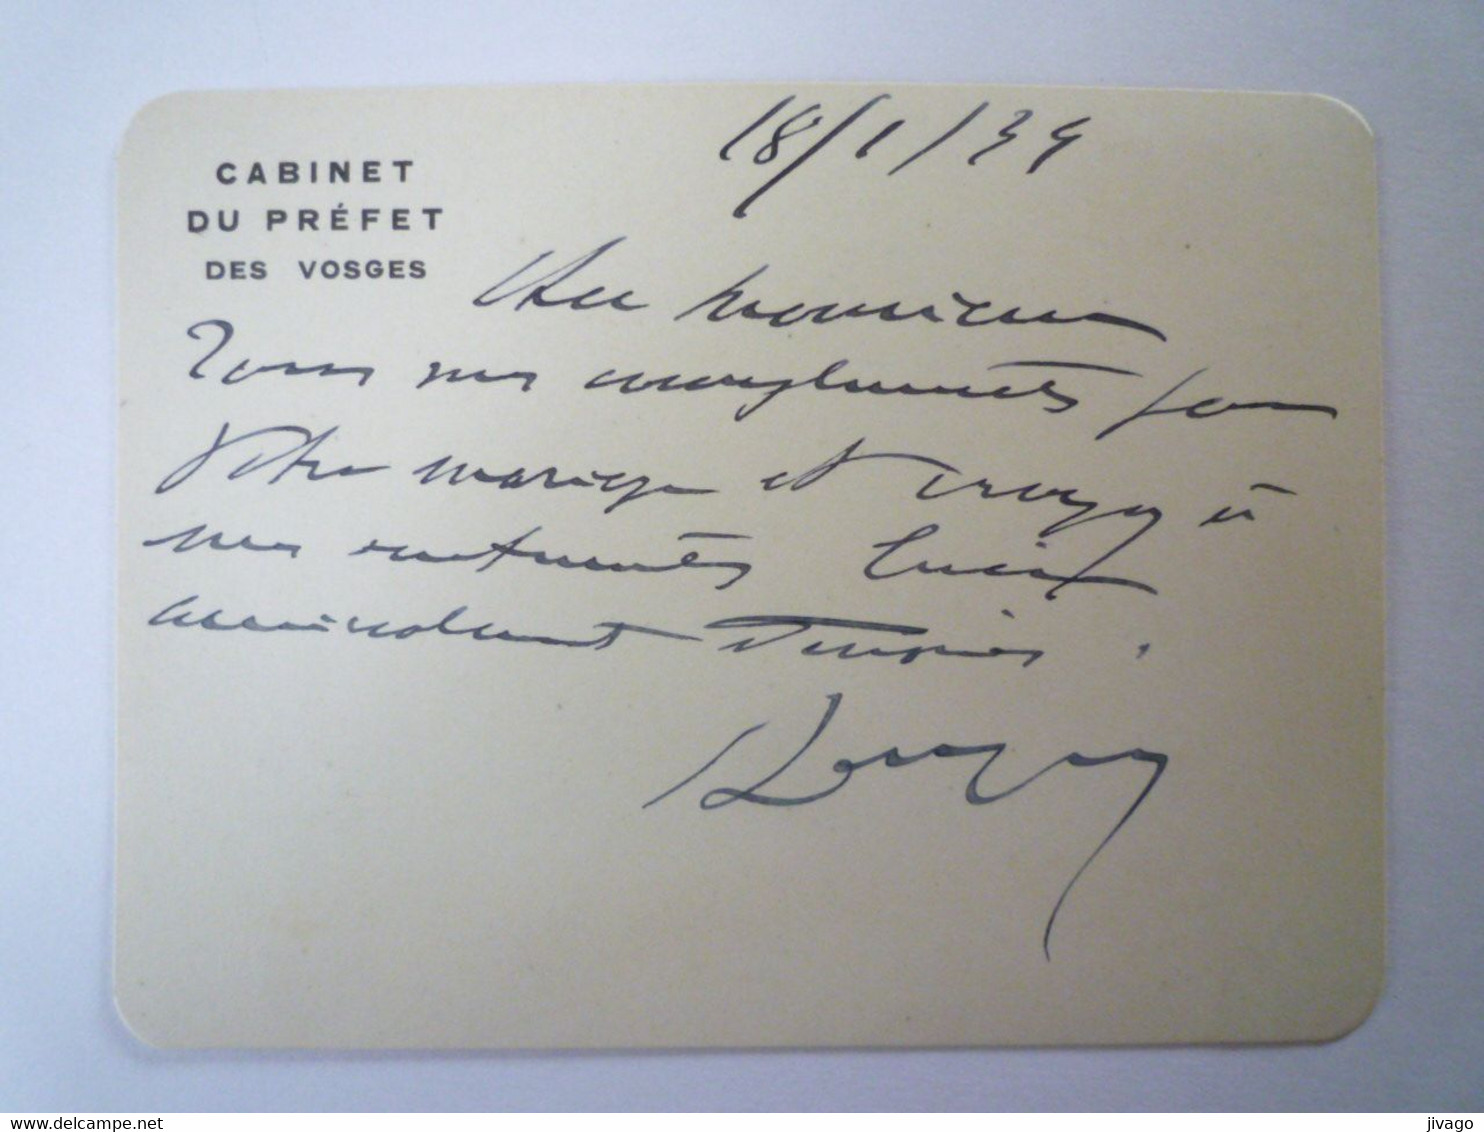 CABINET
DU PRÉFET
DES VOSGES
18/1/34
Cher monsieur
Tous mes compliments pour
votre mariage et croyez à
mes sentiments
amicalement dévoués.
delcampe.net
jivago